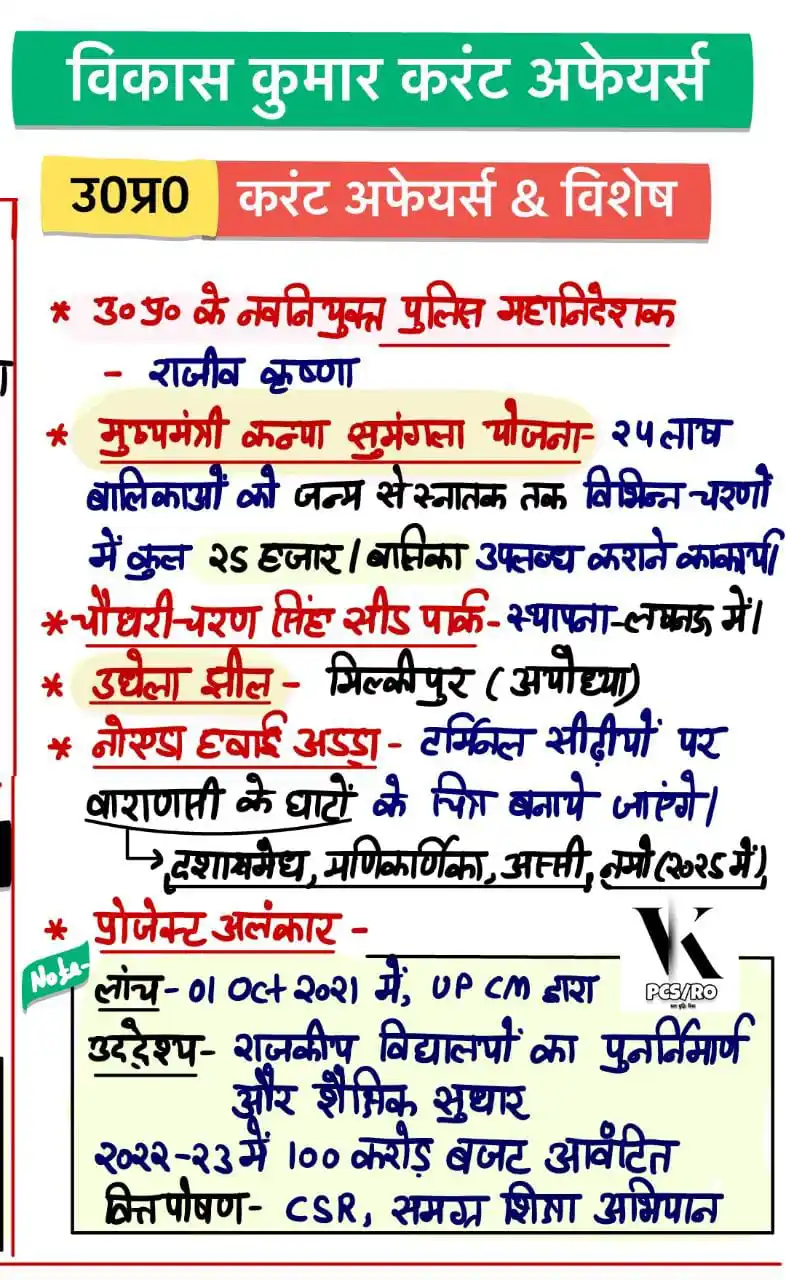 विकास कुमार करंट अफेयर्स
उ0प्र0 करंट अफेयर्स & विशेष
* उ०प्र० के नवनियुक्त पुलिस महानिदेशक
- राजीव कृष्णा
* मुख्यमंत्री कन्या सुमंगला योजना- २५ लाख
बालिकाओं को जन्म से स्नातक तक विभिन्न चरणों
में कुल २५ हजार / बालिका उपलब्ध कराने का कार्य।
* चौधरी चरण सिंह सीड पार्क - स्थापना - लखनऊ में।
* उधेला झील - मिल्कीपुर (अयोध्या)
* नोएडा हवाई अड्डा - टर्मिनल सीढ़ीयों पर
वाराणसी के घाटों के चित्र बनाये जाएंगे।
→ दशाश्वमेध, मणिकर्णिका, अस्सी, नमो (२०२५ में)
* प्रोजेक्ट अलंकार -
Note-
लांच - 01 Oct २०२१ में, UP CM द्वारा
PCS/RO
उददेश्य- राजकीय विद्यालयों का पुनर्निमार्ण
और शैक्षिक सुधार
२०२२-२३ में 100 करोड़ बजट आवंटित
वित्तपोषण- CSR, समग्र शिक्षा अभियान